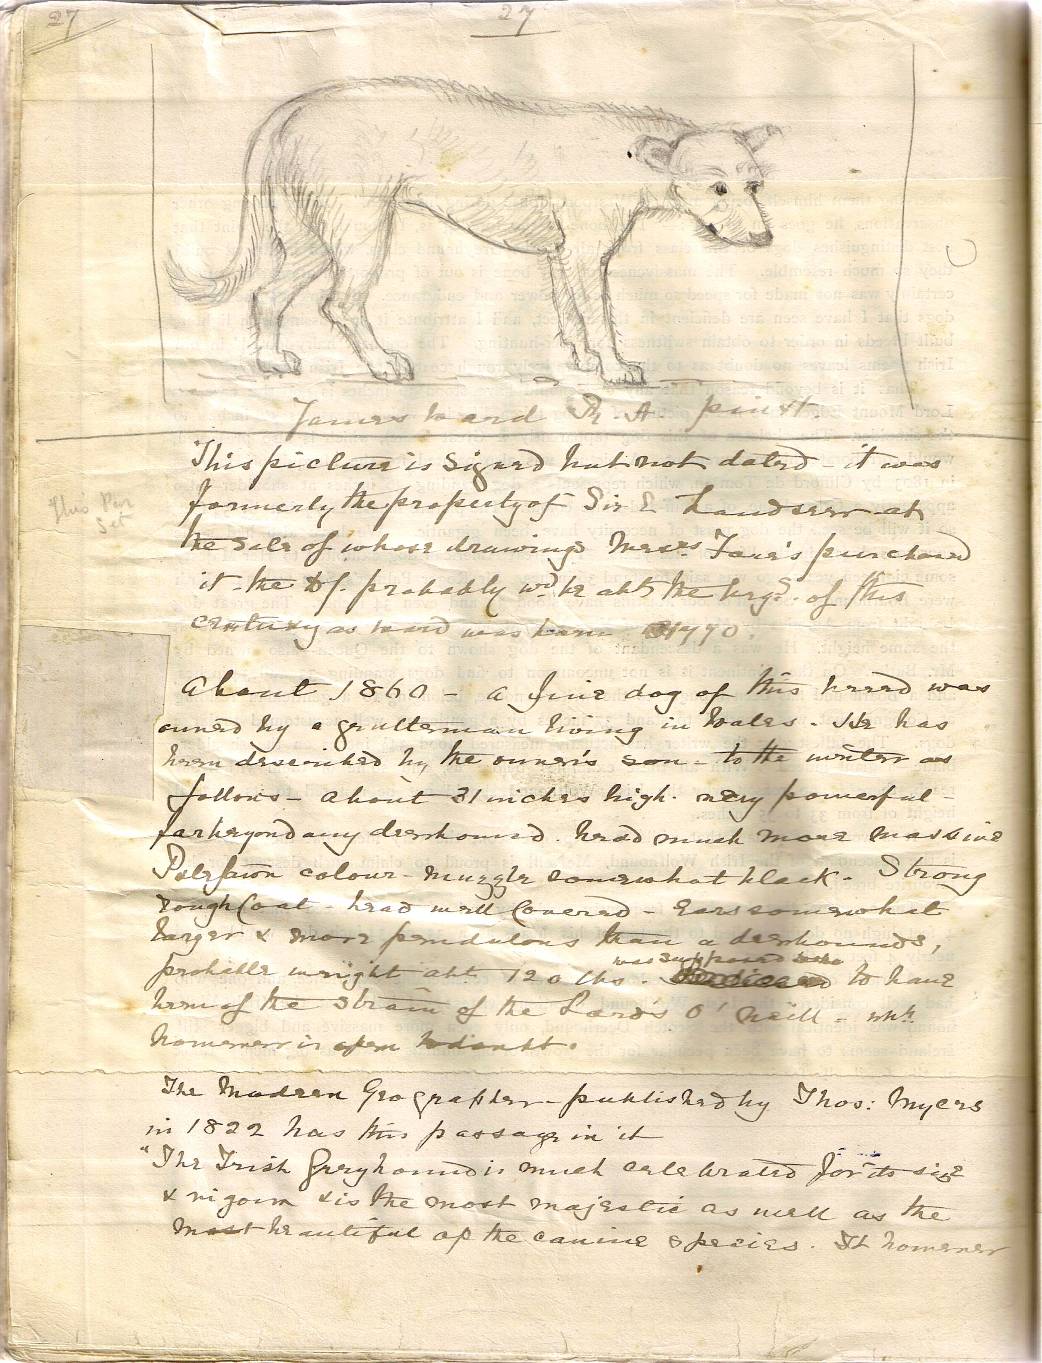 27
27
James Ward R. A pinxt
This picture is signed but not dated - it was
formerly the property of Sir E Landseer at
the sale of whose drawings Messrs purchased
it - the probably wd be abt the begg. of this
century as Ward was born 1770.
This Par
About 1860 - a fine dog of this breed was
owned by a gentleman living in Wales. He has
been described by the owner's son - to the writer as
follows - about 31 inches high. very powerful -
far beyond any deerhound. head much more massive
Pale fawn colour - muzzle somewhat black. Strong
rough Coat - head well Covered - Ears somewhat
larger & more pendulous than a deerhounds,
was supposed
probable weight abt. 120 lbs. to have
been of the strain of the Lords O'Neill - wh.
however is open to doubt.
The Modern Geographer - published by Thos: Myers
in 1822 has this passage in it
"The Irish Greyhound is much celebrated for its size
& vigour & is the most majestic as well as the
most beautiful of the canine species. It however